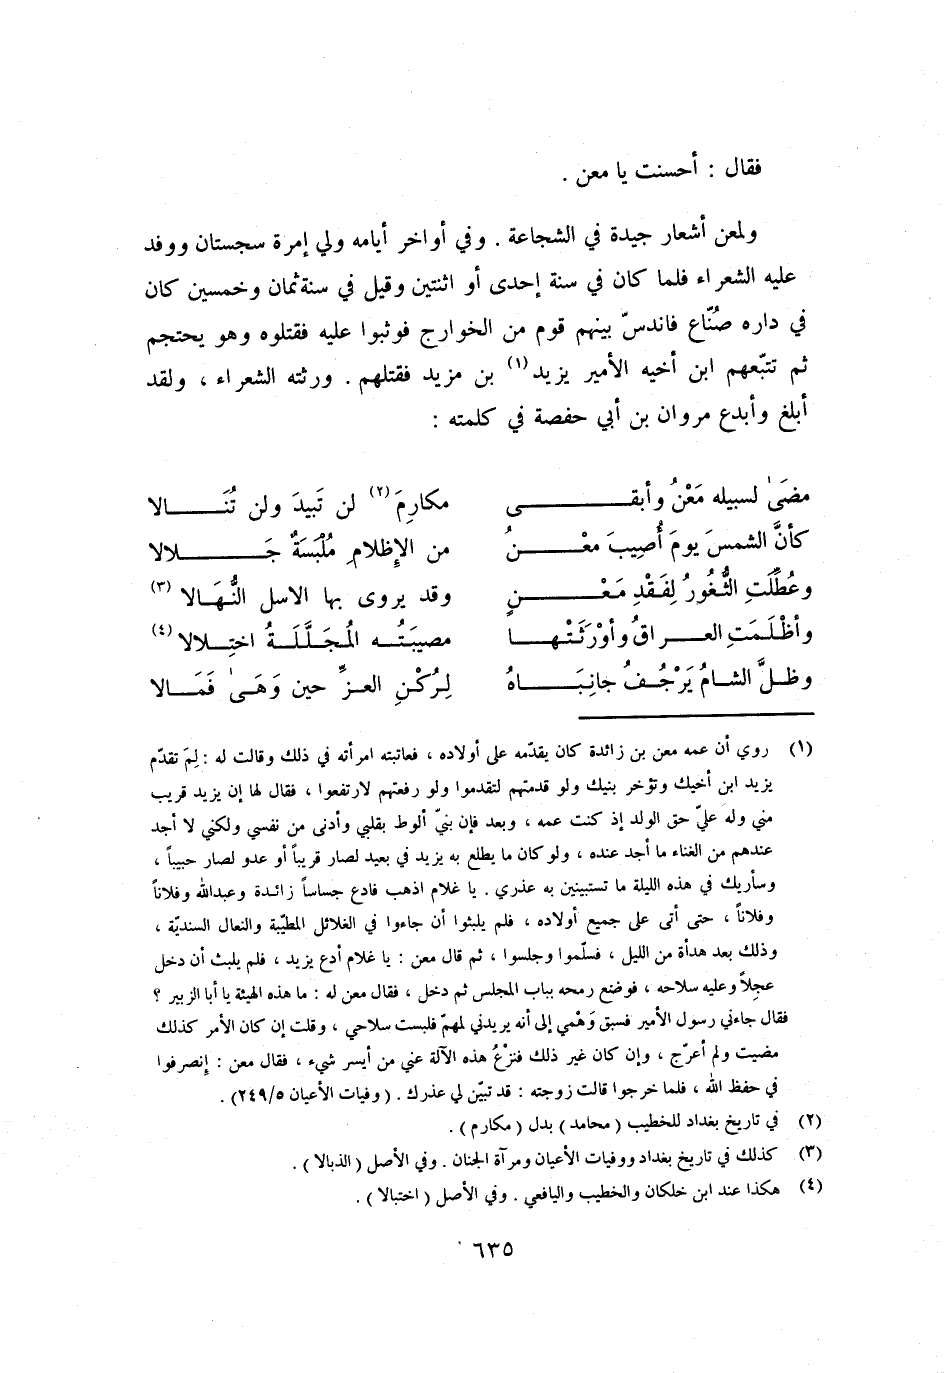 فقال : أحسنت يا معن .
ولمعن أشعار جيدة في الشجاعة . وفي أواخر أيامه ولي إمرة سجستان ووفد
عليه الشعراء فلما كان في سنة إحدى أو اثنتين وقيل في سنة ثمان وخمسين كان
في داره صُنّاع فاندسّ بينهم قوم من الخوارج فوثبوا عليه فقتلوه وهو يحتجم
ثم تتبّعهم ابن أخيه الأمير يزيد (١) بن مزيد فقتلهم . ورثته الشعراء ، ولقد
أبلغ وأبدع مروان بن أبي حفصة في كلمته :
مضَىٰ لسبيله مَعْنُ وأبقــى مكارِمَ (٢) لن تَبيدَ ولن تُنَــالا
كأنَّ الشمسَ يومَ أُصِيبَ معْــنُ من الإِظلامِ مُلْبَسَةٌ جَــلالا
وعُطِّلَتِ الثُّغُورُ لِفَقْدِ مَعْــنٍ وقد يروى بها الاسل النُّهَالا (٣)
وأظْلَمَتِ العــراقُ وأوْرَثَتْهــا مصيبَتُــه المُجَلَّلَــةُ اختِــلالا (٤)
وظــلَّ الشامُ يَرْجُــفُ جانِبَــاهُ لِرُكْنِ العــزِّ حين وَهَىٰ فَمَــالا
(١) روي أن عمه معن بن زائدة كان يقدّمه على أولاده ، فعاتبته امرأته في ذلك وقالت له : لِمَ تقدّم
يزيد ابن أخيك وتؤخر بنيك ولو قدمتهم لتقدموا ولو رفعتهم لارتفعوا ، فقال لها إن يزيد قريب
مني وله عليّ حق الولد إذ كنت عمه ، وبعد فإن بنيّ ألوط بقلبي وأدنى من نفسي ولكني لا أجد
عندهم من الغناء ما أجد عنده ، ولو كان ما يطلع به يزيد في بعيد لصار قريباً أو عدو لصار حبيباً ،
وسأريك في هذه الليلة ما تستبينين به عذري . يا غلام اذهب فادع جساساً زائدة وعبدالله وفلاناً
وفلاناً ، حتى أتى على جميع أولاده ، فلم يلبثوا أن جاءوا في الغلائل المطيّبة والنعال السنديّة ،
وذلك بعد هدأة من الليل ، فسلّموا وجلسوا ، ثم قال معن : يا غلام أدع يزيد ، فلم يلبث أن دخل
عجِلاً وعليه سلاحه ، فوضع رمحه بباب المجلس ثم دخل ، فقال معن له : ما هذه الهيئة يا أبا الزبير ؟
فقال جاءني رسول الأمير فسبق وَهْمي إلى أنه يريدني لمهمّ فلبست سلاحي ، وقلت إن كان الأمر كذلك
مضيت ولم أعرّج ، وإن كان غير ذلك فنزْعُ هذه الآلة عني من أيسر شيء ، فقال معن : إنصرفوا
في حفظ الله ، فلما خرجوا قالت زوجته : قد تبيّن لي عذرك . (وفيات الأعيان ٥/٢٤٩) .
(٢) في تاريخ بغداد للخطيب (محامد) بدل (مكارم) .
(٣) كذلك في تاريخ بغداد ووفيات الأعيان ومرآة الجنان . وفي الأصل (الذبالا) .
(٤) هكذا عند ابن خلكان والخطيب واليافعي . وفي الأصل (اختبالا) .
٦٣٥